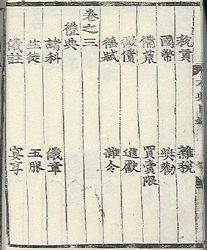 稅貢 雜稅
國幣 奬勸
備荒 買賣限
徵債 進獻
徭賦 雜令
卷之三
禮典
諸科 儀章
生徒 五服
儀註 宴享